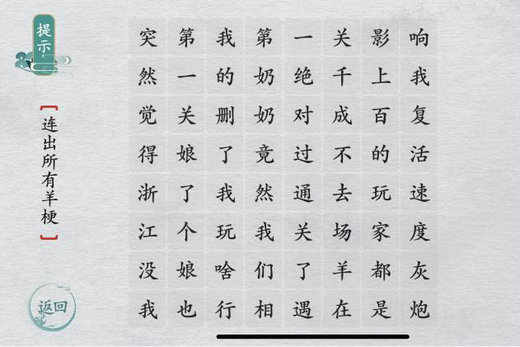 提示
【连出所有羊梗】
返回
突第我第一关影响
然一的奶绝千上我
觉关删奶对成百复
得娘了竟过不的活
浙了我然通去玩速
江个玩我关场家度
没娘啥们了羊都灰
我也行相遇在是炮